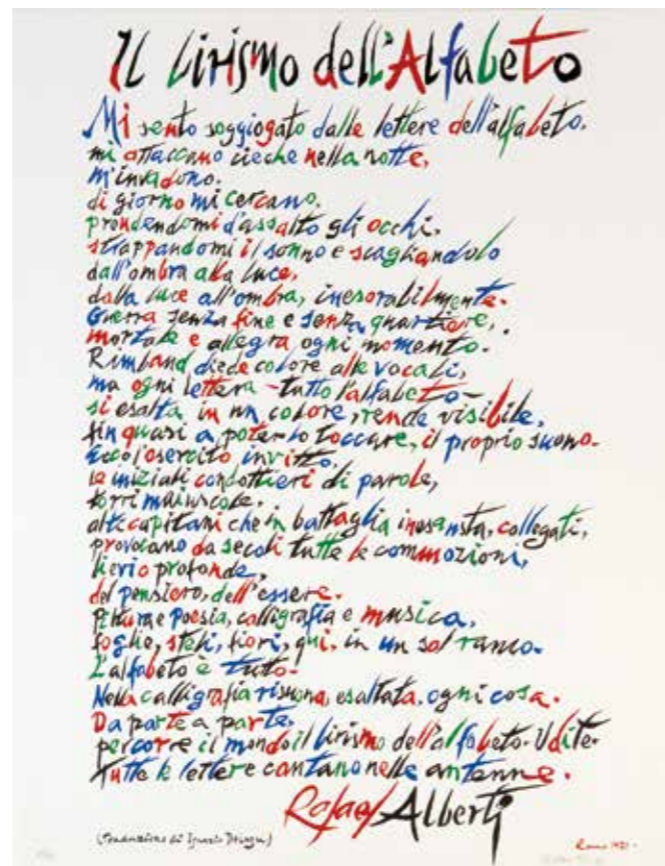 Il lirismo dell'Alfabeto
Mi sento soggiogato dalle lettere dell'alfabeto.
mi attaccano cieche nella notte,
m'invadono.
di giorno mi cercano.
prendendomi d'assalto gli occhi.
strappandomi il sonno e scagliandolo
dall'ombra alla luce,
dalla luce all'ombra, inesorabilmente.
Guerra senza fine e senza quartiere,
mortale e allegra ogni momento.
Rimbaud diede colore alle vocali,
ma ogni lettera - tutto l'alfabeto -
si esalta in un colore, rende visibile,
fin quasi a poterlo toccare, il proprio suono.
Ecco l'esercito invitto.
le iniziali condottieri di parole,
torri maiuscole.
alte capitani che in battaglia inesausta, collegati,
provocano da secoli tutte le commozioni,
lievi o profonde,
del pensiero, dell'essere.
Pittura e Poesia, calligrafia e musica,
foglie, steli, fiori, qui, in un sol ramo.
L'alfabeto è tutto.
Nella calligrafia risuona, esaltata, ogni cosa.
Da parte a parte,
percorre il mondo il lirismo dell'alfabeto. Udite.
Tutte le lettere cantano nelle antenne.
Rafael Alberti
(Traduzione di Ignazio
Roma